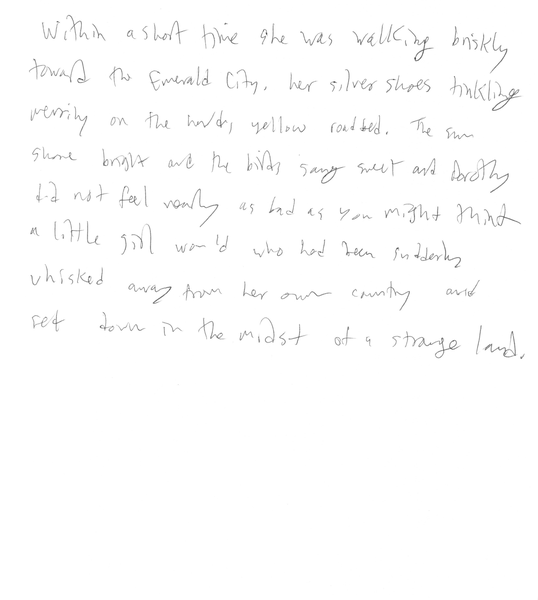 Within a short time she was walking briskly
toward the Emerald City, her silver shoes tinkling
merrily on the hard, yellow roadbed. The sun
shone bright and the birds sang sweet and Dorothy
did not feel nearly as bad as you might think
a little girl would who had been suddenly
whisked away from her own country and
set down in the midst of a strange land.